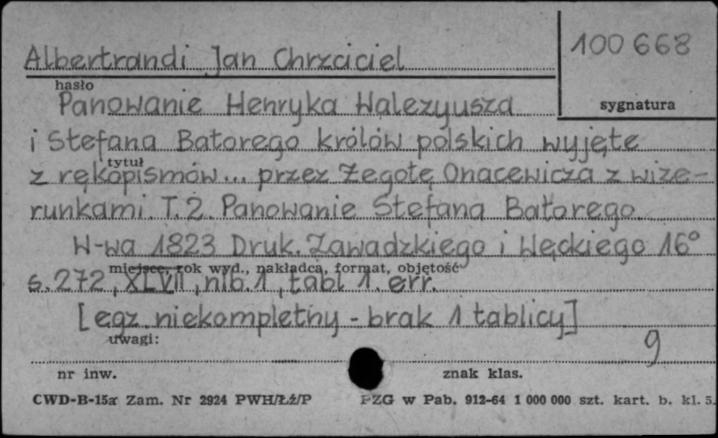 Albertrandi Jan Chrzciciel
100 668
hasło
sygnatura
Panowanie Henryka Walezyusza
i Stefana Batorego królów polskich wyjęte
tytuł
z rękopismów... przez Żegotę Onacewicza z wize-
runkami. T. 2. Panowanie Stefana Batorego.
W-wa 1823 Druk. Zawadzkiego i Węckiego 16°
miejsce, rok wyd., nakładca, format, objętość
s. 272, XLVII, nlb. 1, tabl 1. err.
[egz. niekompletny - brak 1 tablicy]
uwagi:
9
nr inw.
znak klas.
CWD-B-15a Zam. Nr 2924 PWH/Łź/P
PZG w Pab. 912-64 1 000 000 szt. kart. b. kl. 5.